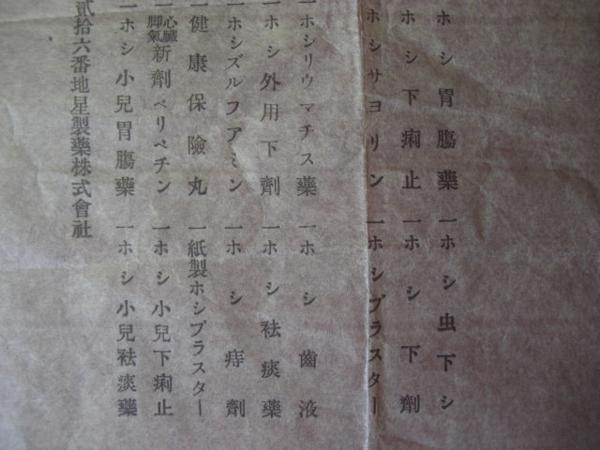 ホシ胃腸藥 一ホシ虫下シ
ホシ下痢止 一ホシ下劑
ホシサヨリン 一ホシプラスター
一ホシリウマチス藥 一ホシ齒液
一ホシ外用下劑 一ホシ袪痰藥
一ホシズルフアミン 一ホシ痔劑
一健康保險丸 一紙製ホシプラスター
一心臟脚氣新劑ベリベチン 一ホシ小兒下痢止
一ホシ小兒胃腸藥 一ホシ小兒袪痰藥
貳拾六番地星製藥株式會社